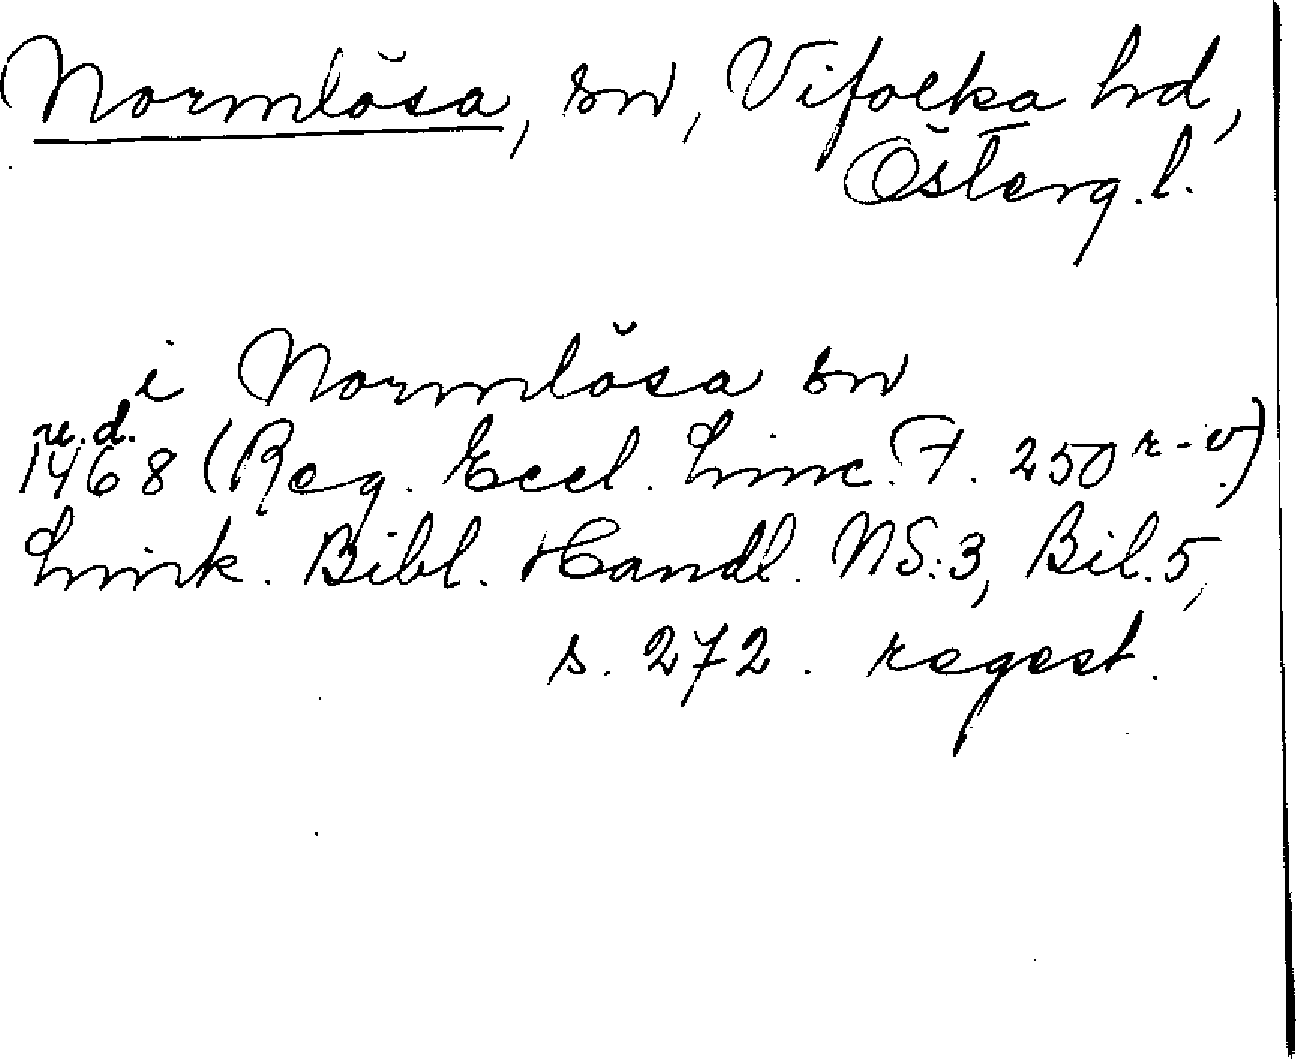 Normlösa, sn, Vifolka hd,
Österg. l.
i Normlösa sn
u.d.
1468 (Reg. Eccl. Linc. F. 250 r-v.)
Link. Bibl. Handl. NS:3, Bil. 5,
s. 272. regest.